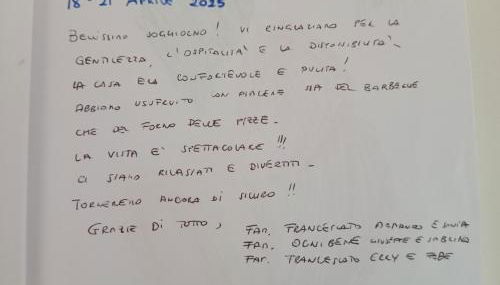 18-21 APRILE 2025
BELLISSIMO SOGGIORNO! VI RINGRAZIAMO PER LA
GENTILEZZA, L'OSPITALITA' E LA DISPONIBILITA'.
LA CASA ERA CONFORTEVOLE E PULITA!
ABBIAMO USUFRUITO CON PIACERE SIA DEL BARBEQUE
CHE DEL FORNO DELLE PIZZE.
LA VISTA E' SPETTACOLARE!!!
CI SIAMO RILASSATI E DIVERTITI.
TORNEREMO ANCORA DI SICURO!!
GRAZIE DI TUTTO,
FAM. FRANCESCATO ARMANDO E
FAM. OGNIBENE GIUSEPPE E SABRINA
FAM. FRANCESCATO ELLY E